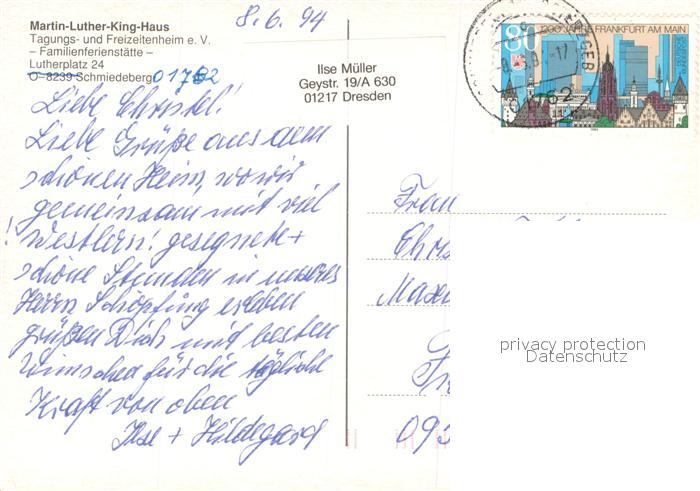 8.6.94
Martin-Luther-King-Haus
Tagungs- und Freizeitenheim e. V.
– Familienferienstätte –
Lutherplatz 24
O-8239 Schmiedeberg 01762
Ilse Müller
Geystr. 19/A 630
01217 Dresden
80 1200 JAHRE FRANKFURT AM MAIN
Liebe Christel!
Liebe Grüße aus dem
schönen Heim, wo wir
gemeinsam mit viel
! Westlern! gesegnete +
schöne Stunden in unseres
Herrn Schöpfung erleben
grüßen Dich mit besten
Wünschen für die tägliche
Kraft von oben
Ilse + Hildegard
Frau
Chris
Maxi
Fr
095
privacy protection
Datenschutz